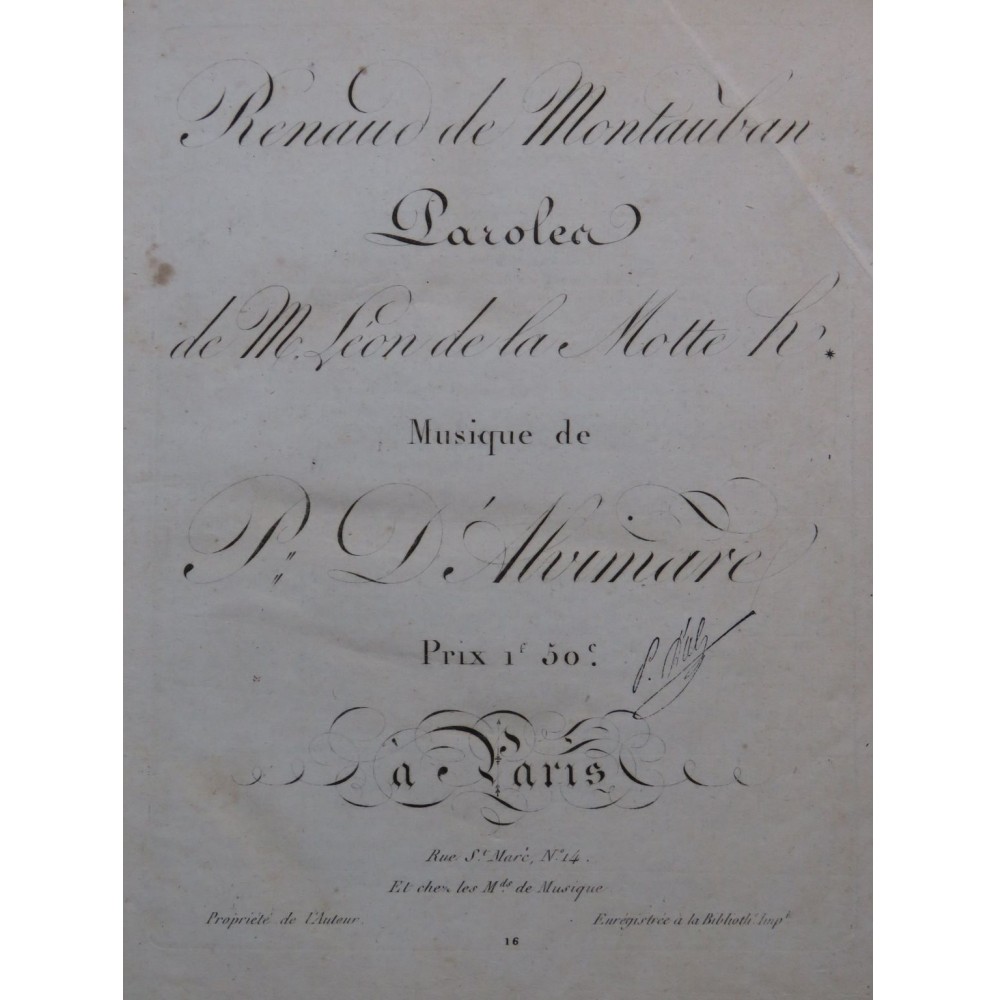 Renaud de Montauban
Paroles
de M. Léon de la Motte h.*
Musique de
P. D'Alvimare
Prix 1f 50c.
à Paris
Rue St. Marc, No. 14.
Et chez les Mds de Musique
Propriété de l'Auteur.
Enregistrée à la Biblioth. Imple
16